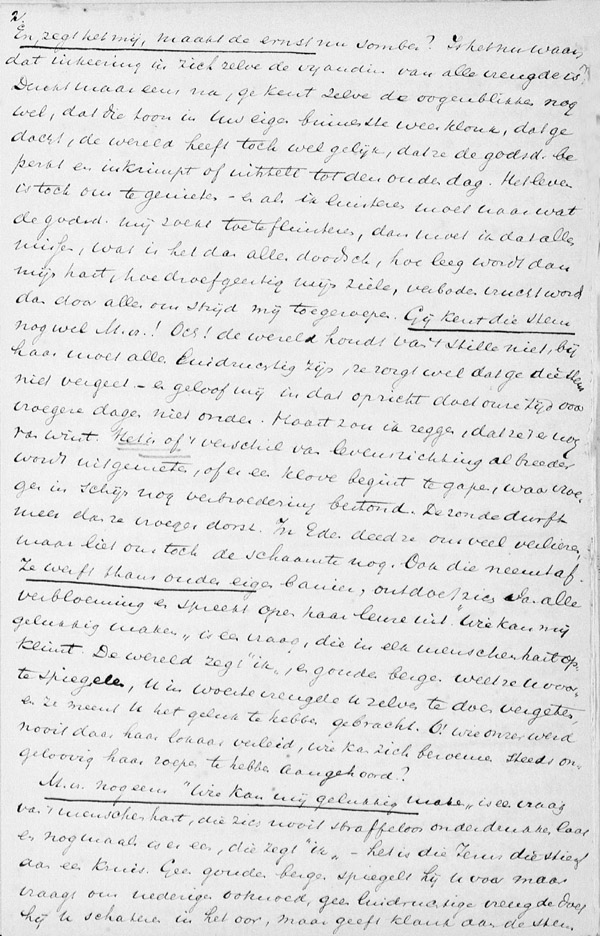 2.
En, zegt het mij, maakt de ernst nu somber? Is het nu waar,
dat inkeering in zich zelve de vijandin van alle vreugde is?
Denkt maar eens na, ge kent zelve de oogenblikken nog
wel, dat die toon in Uw eigen binnenste weerklonk, dat ge
dacht, de wereld heeft toch wel gelijk, dat ze de godsd. be
perkt en inkrimpt of uitstelt tot den ouden dag. Het leven
is toch om te genieten – en als ik luisteren moet naar wat
de godsd. mij zoekt toe te fluisteren, dan moet ik dat alles
missen, wat is het dan alles doodsch, hoe leeg wordt dan
mijn hart, hoe droefgeestig mijn ziele, verboden vrucht wordt
dan door alles om strijd mij toegeroepen. Gij kent die stem
nog wel M.v.! Och! de wereld houdt van 't stille niet, bij
haar moet alles luidruchtig zijn, ze zorgt wel dat ge die stem
niet vergeet – en geloof mij in dat opzicht doet onze tijd voor
vroegere dagen niet onder. Haast zou ik zeggen, dat ze 't er nog
van wint. Het is of 't verschil van levensrichting al breeder
wordt uitgemeten, of er een klove begint te gapen, waar vroe
ger in schijn nog verbroedering bestond. De zonde durft
meer dan ze vroeger dorst. In Eden deed ze ons veel verliezen,
maar liet ons toch de schaamte nog. Ook die neemt af.
Ze werft thans onder eigen banier, ontdoet zich van alle
verbloeming en spreekt open haar leuze uit. "Wie kan mij
gelukkig maken„ is een vraag, die in elk menschenhart op-
klimt. De wereld zegt "ik„, en gouden bergen weet ze U voor
te spiegelen, U in woeste vreugde U zelven te doen vergeten,
en ze meent U het geluk te hebben gebracht. O! wie onzer werd
nooit door haar lokaas verleid, wie kan zich beroemen steeds on-
geloovig haar roepen te hebben aangehoord?
M.v. nog eens "Wie kan mij gelukkig maken„ is een vraag
van 't menschenhart, die zich nooit straffeloos onderdrukken laat
en nogmaals is er een, die zegt "ik„ – het is die Jezus die stierf
aan een kruis. Geen gouden bergen spiegelt hij U voor maar
vraagt om nederigen ootmoed, geen luidruchtige vreugde doet
hij U schateren in het oor, maar geeft klank aan de stem